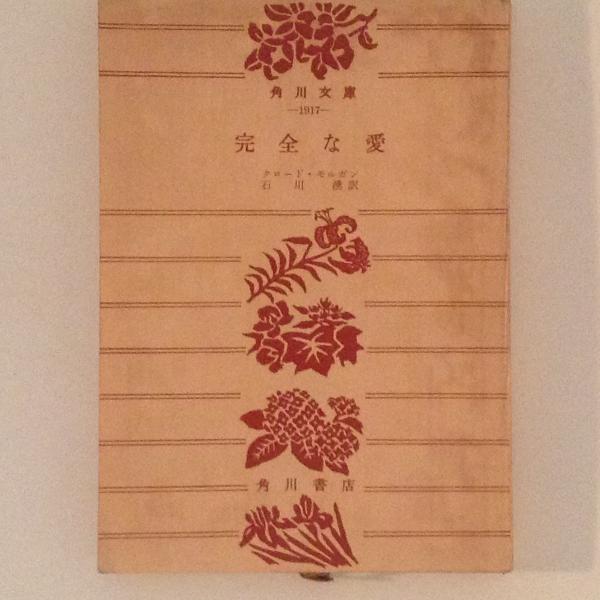 角川文庫
—1917—
完全な愛
クロード・モルガン
石川湧訳
角川書店